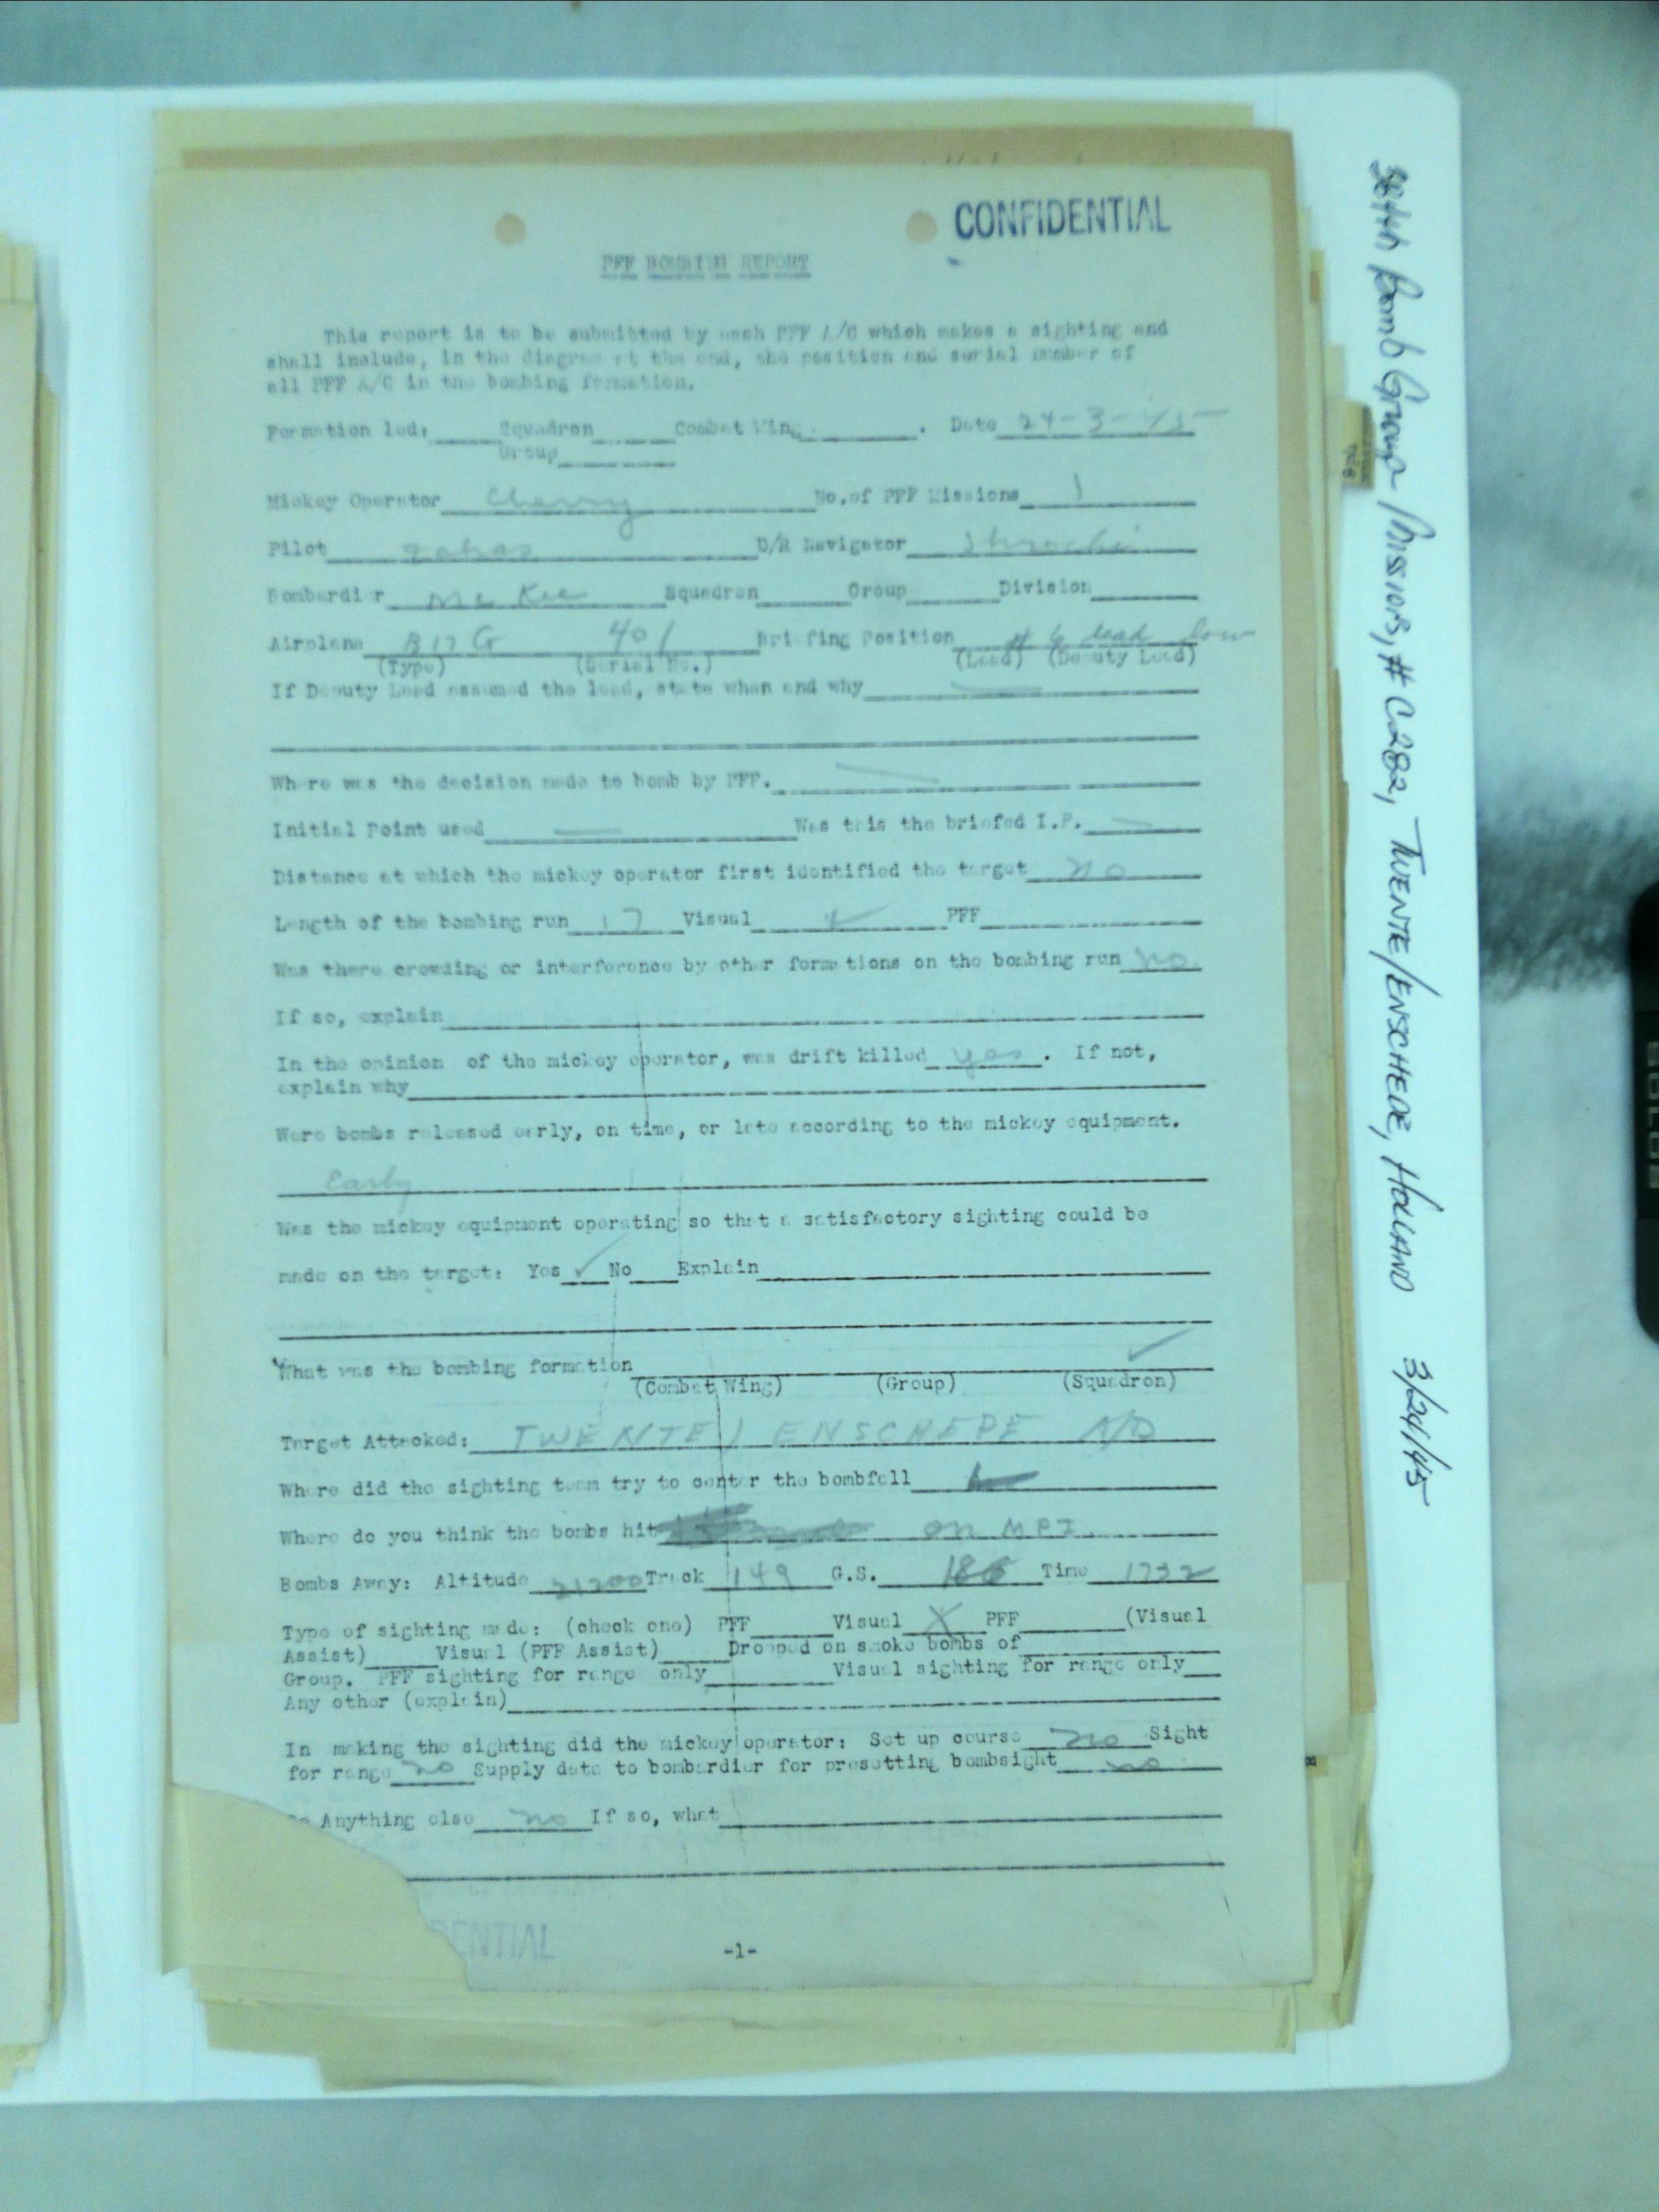 CONFIDENTIAL
PFF BOMBING REPORT
This report is to be submitted by each PFF A/C which makes a sighting and
shall include, in the diagram at the end, the position and serial number of
all PFF A/C in the bombing formation.
Formation led: Squadron Combat Wing . Date 24-3-45
Group
Mickey Operator Cherry No. of PFF Missions 1
Pilot D/R Navigator
Bombardier McKee Squadron Group Division
Airplane B17G 401 Briefing Position # 6 lead low
(Type) (Serial No.) (Lead) (Deputy Lead)
If Deputy Lead assumed the lead, state when and why
Where was the decision made to bomb by PFF.
Initial Point used Was this the briefed I.P.
Distance at which the mickey operator first identified the target no
Length of the bombing run 17 Visual ✓ PFF
Was there crowding or interference by other formations on the bombing run no.
If so, explain
In the opinion of the mickey operator, was drift killed yes . If not,
explain why
Were bombs released early, on time, or late according to the mickey equipment.
Early
Was the mickey equipment operating so that a satisfactory sighting could be
made on the target: Yes ✓ No Explain
What was the bombing formation ✓
(Combat Wing) (Group) (Squadron)
Target Attacked: TWENTE / ENSCHEDE A/D
Where did the sighting team try to center the bombfall
Where do you think the bombs hit on MPI.
Bombs Away: Altitude 21200 Track 149 G.S. 186 Time 1732
Type of sighting made: (check one) PFF Visual X PFF (Visual
Assist) Visual (PFF Assist) Dropped on smoke bombs of
Group. PFF sighting for range only Visual sighting for range only
Any other (explain)
In making the sighting did the mickey operator: Set up course no Sight
for range no Supply data to bombardier for presetting bombsight no
Anything else no If so, what
DENTIAL
-1-
384th Bomb Group Missions, # C282, TWENTE/ENSCHEDE, HOLLAND 3/24/45